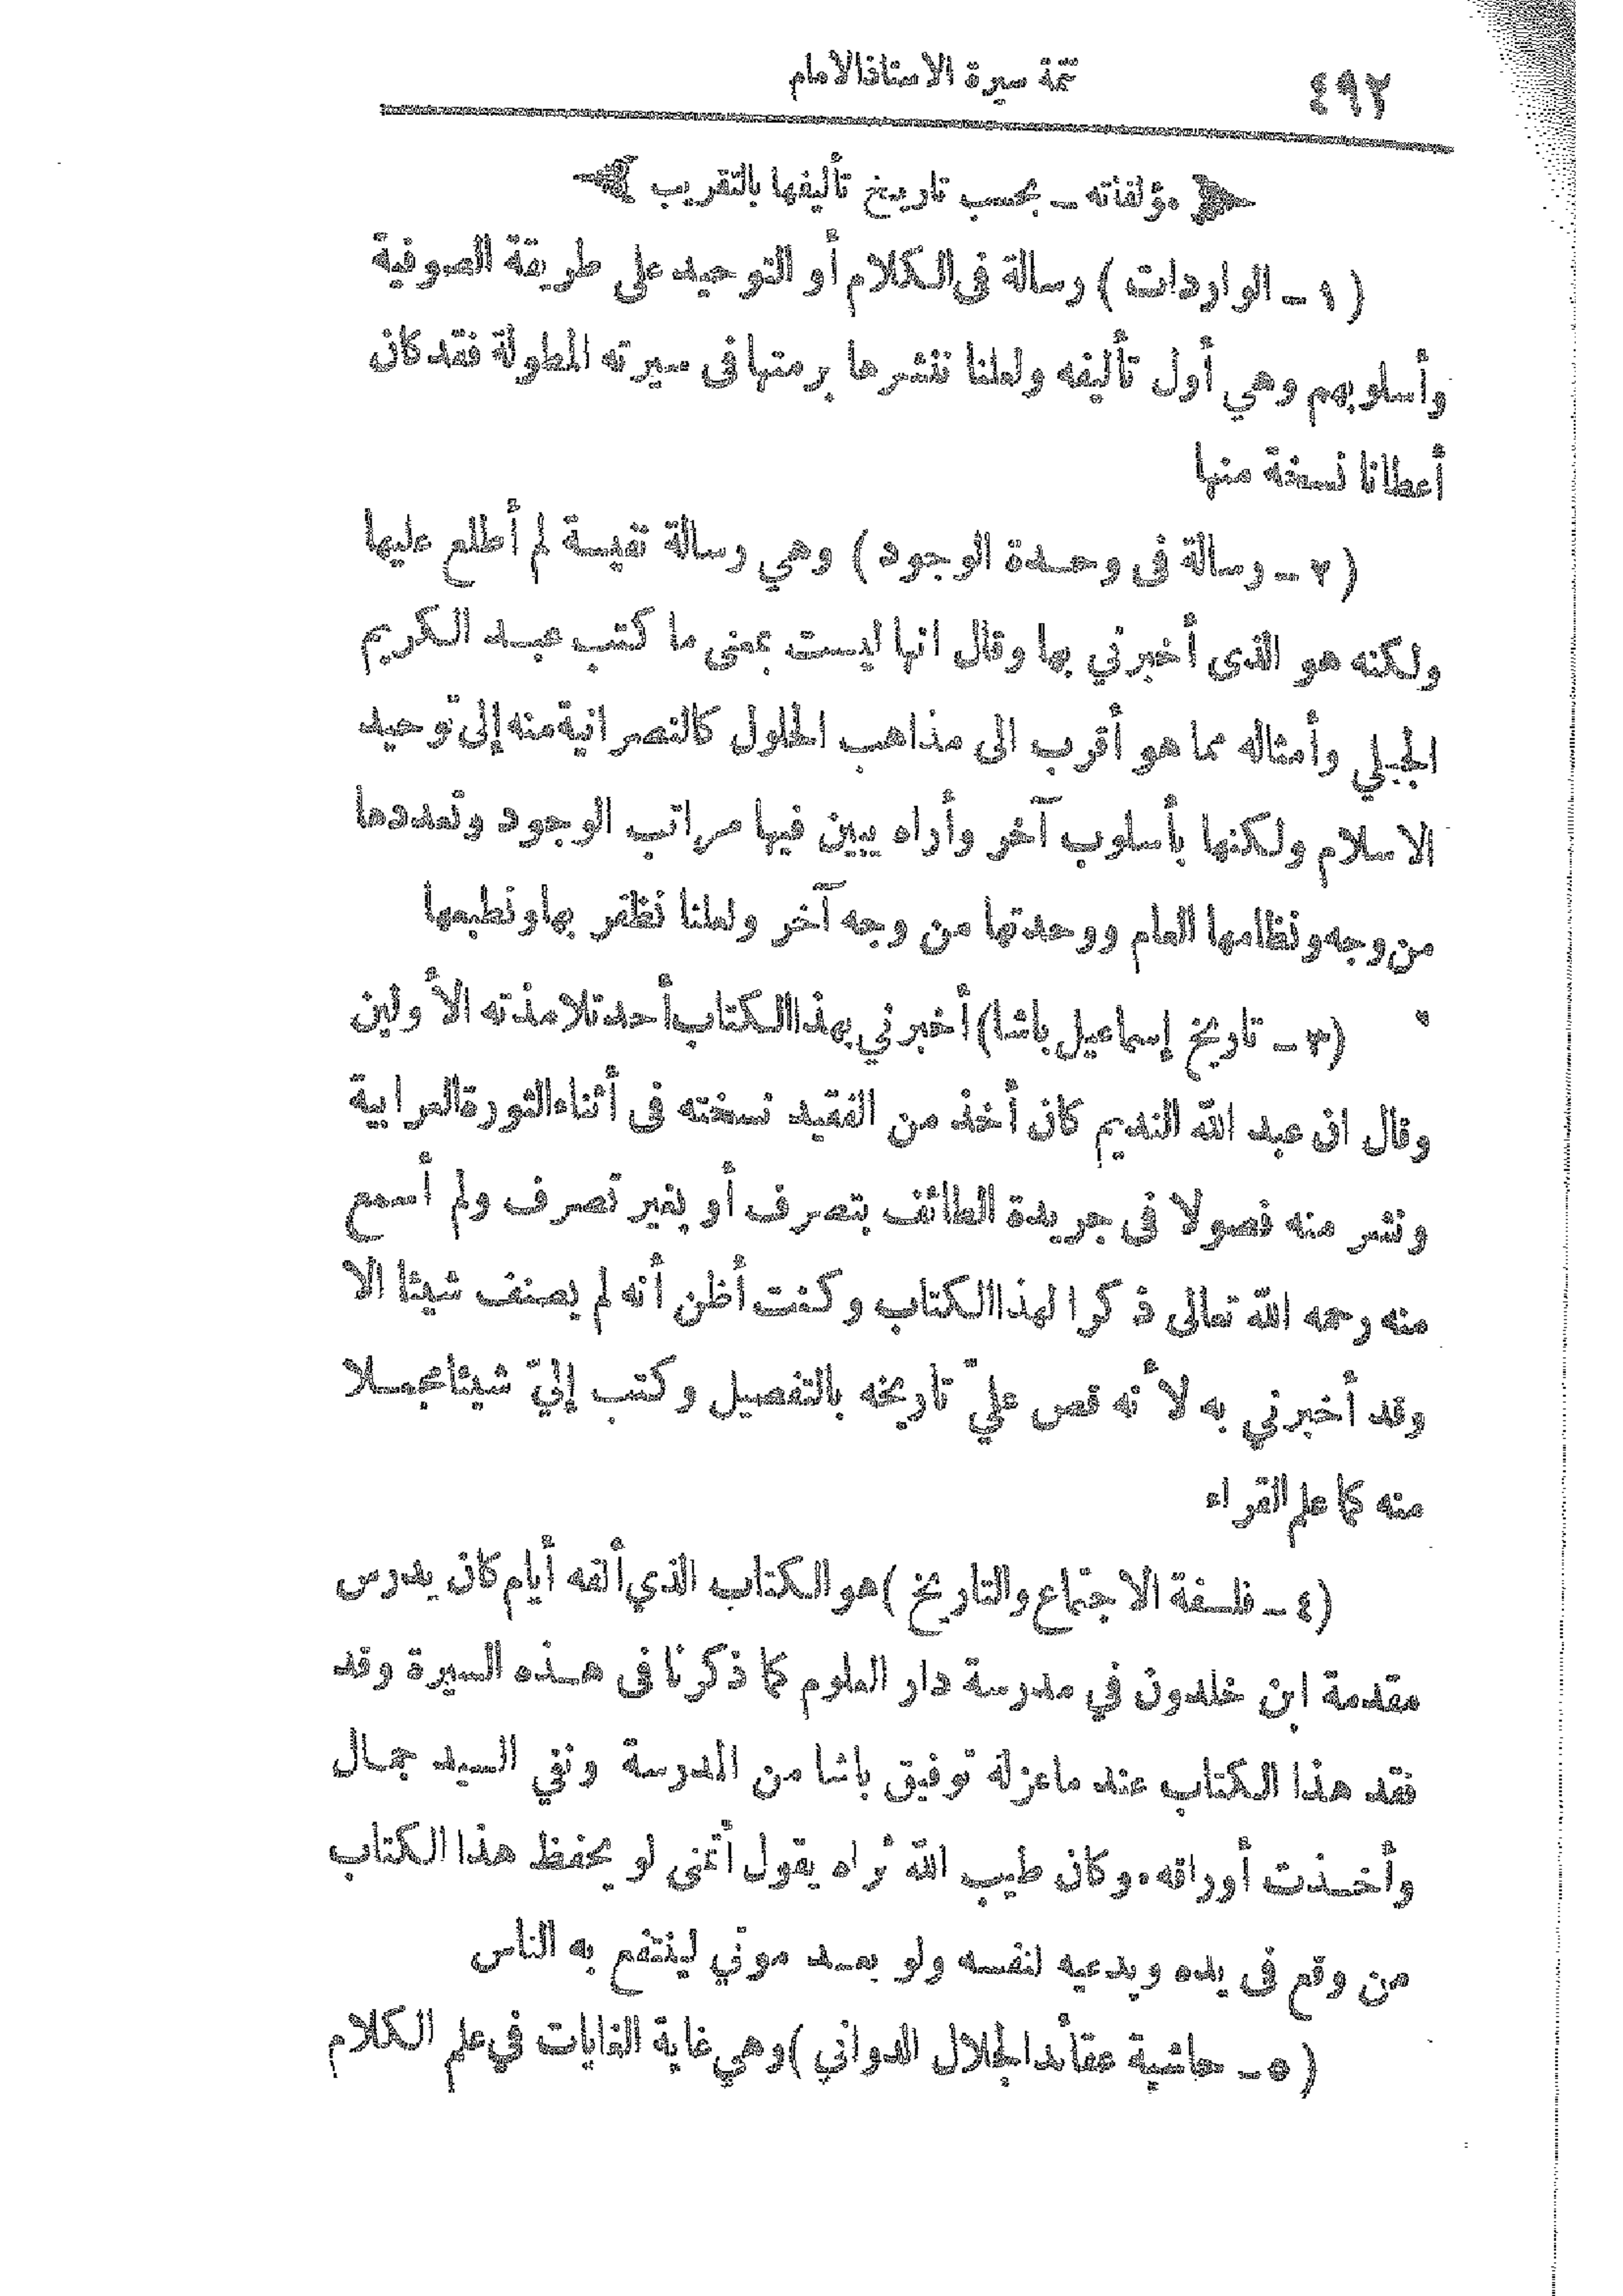 ٤٩٢
تتمة سيرة الاستاذ الامام
﴿ مؤلفاته ــ بحسب تاريخ تأليفها بالتقريب ﴾
( ١ ــ الواردات ) رسالة فى الكلام أو التوحيد على طريقة الصوفية
وأسلوبهم وهي أول تأليفه ولعلنا ننشرها برمتها فى سيرته المطولة فقد كان
أعطانا نسخة منها
( ٢ ــ رسالة فى وحدة الوجود ) وهي رسالة نفيسة لم أطلع عليها
ولكنه هو الذى أخبرني بها وقال انها ليست بمعنى ما كتب عبد الكريم
الجيلي وأمثاله مما هو أقرب الى مذاهب الحلول كالنصرانية منه إلى توحيد
الاسلام ولكنها بأسلوب آخر وأراه يبين فيها مراتب الوجود وتعددها
من وجه ونظامها العام ووحدتها من وجه آخر ولعلنا نظفر بها ونطبعها
(٣ ــ تاريخ إسماعيل باشا) أخبرني بهذا الكتاب أحد تلامذته الأولين
وقال ان عبد الله النديم كان أخذ من الفقيد نسخته فى أثناء الثورة العرابية
ونشر منه فصولا فى جريدة الطائف بتصرف أو بغير تصرف ولم أسمع
منه رحمه الله تعالى ذكرا لهذا الكتاب وكنت أظن أنه لم يصنف شيئا الا
وقد أخبرني به لأنه قص عليّ تاريخه بالتفصيل وكتب إليّ شيئا مجملا
منه كما علم القراء
(٤ ــ فلسفة الاجتماع والتاريخ ) هو الكتاب الذي ألفه أيام كان يدرس
مقدمة ابن خلدون في مدرسة دار العلوم كما ذكرنا فى هذه السيرة وقد
فقد هذا الكتاب عند ما عزله توفيق باشا من المدرسة ونفي السيد جمال
وأخذت أوراقه . وكان طيب الله ثراه يقول أتمنى لو يحفظ هذا الكتاب
من وقع فى يده ويدعيه لنفسه ولو بعد موتي لينتفع به الناس
( ٥ ــ حاشية عقائد الجلال الدواني ) وهي غاية الغايات في علم الكلام